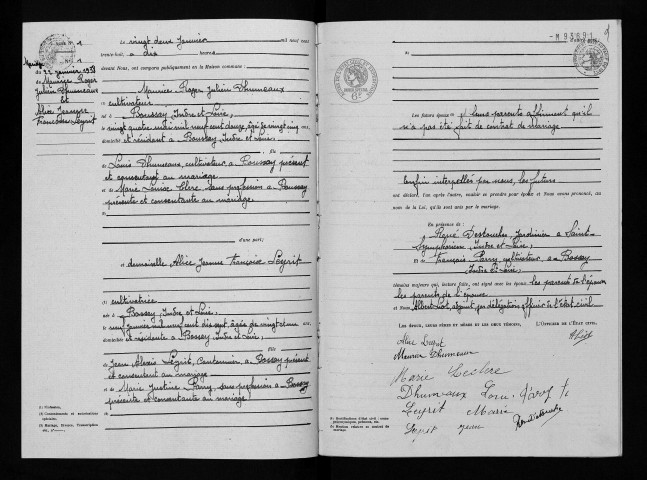 Mariage
du 22 janvier 1938
Maurice Roger
Julien Dhumeaux
et
Alice Jeanne
Françoise Leyrit
Le vingt deux Janvier mil neuf cent
trente-huit, à dix heures
devant Nous, ont comparu publiquement en la Maison commune :
Maurice Roger Julien Dhumeaux
cultivateur
né à Boussay, Indre et Loire,
le vingt quatre mil neuf cent douze, âgé de vingt cinq ans,
domicilié et résident à Boussay, Indre et Loire, fils
de Louis Dhumeaux, cultivateur, à Boussay présent
et consentant au mariage
et de Marie Luise Clere, sans profession à Boussay
présente et consentante au mariage
d'une part;
et demoiselle Alice Jeanne Françoise Leyrit
cultivatrice
née à Bossay, Indre et Loire,
le neuf janvier mil neuf cent dix sept, âgée de vingt et un ans,
domiciliée et résidente à Bossay, Indre et Loire, fille
de Jean Alexis Leyrit, Cantonnier, à Bossay présent
et consentant au mariage
et de Marie Justine Parry, sans profession à Bossay
présente et consentante au mariage
M 93691
Les futurs époux et leurs parents affirment qu'il
n'a pas été fait de contrat de mariage
Enfin interpellés par nous, les futurs
ont déclaré, l'un après l'autre, vouloir se prendre pour époux et Nous avons prononcé, au
nom de la Loi, qu'ils sont unis par le mariage.
En présence de :
René Destouches, Jardinier à Saint-
Symphorien, Indre et Loire,
et de François Parry cultivateur, à Bossay
Indre et Loire,
témoins majeurs qui, lecture faite, ont signé avec les époux, les parents de l'époux
les parents de l'épouse
et Nous, Albert Liot, agissant par délégation, officier de l'état civil
LES ÉPOUX, LEURS PÈRES ET MÈRES ET LES TÉMOINS, L'OFFICIER DE L'ÉTAT CIVIL
Alice Leyrit
Maurice Dhumeaux
Marie Leclere
Dhumeaux Louis
Leyrit Marie
Leyrit Jean